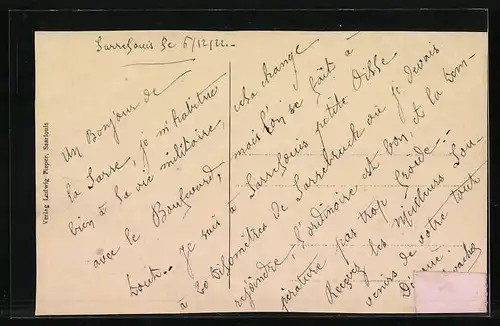 Sarrelouis le 5/12/22.
Un Bonjour de
la Sarre, je m'habitue
bien à la vie militaire
avec le Boulevard,
tout.. Je suis à Sarrelouis petite Ville
à 20 Kilomètres de Sarrebruck où je devais
rejoindre, l'ordinaire est bon, et la Tem-
pérature pas trop froide..
Recevez les Meilleurs Sou-
venirs de votre tout
Dévoué
cela change
mais l'on se fait à
Verlag Ludwig Pieper, Saarlouis